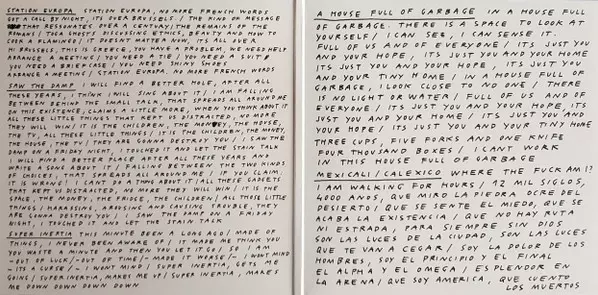 STATION EUROPA. STATION EUROPA, NO MORE FRENCH WORDS
GOT A CALL BY NIGHT, ITS OVER BRUSSELS. / THE KIND OF MESSAGE
THAT RESSONATES OVER A CENTURY/ THE REMAINS OF THE
ROMANS / TOGA GHOSTS DISCUSSING ETHICS, BEAUTY AND HOW TO
COOK A FLAMINGO / IT DOESNT MATTER NOW, ITS ALL OVER
HI BRUSSELS, THIS IS GREECE, YOU HAVE A PROBLEM, WE NEED HELP
ARRANGE A MEETING / YOU NEED A TIE / YOU NEED A SUIT /
YOU NEED A BRIEFCASE / YOU NEED SHINY SHOES
ARRANGE A MEETING / STATION EUROPA. NO MORE FRENCH WORDS
SAW THE DAMP I WILL FIND A BETTER HOLE, AFTER ALL
THESE YEARS, I THINK I WILL SING ABOUT IT / I AM FALLING
BETWEEN BEHIND THE SMALL TALK, THAT SPREADS ALL AROUND ME
ON THIS EXISTENCE, CLAIMS A LITTLE MORE, WHEN YOU THINK ABOUT IT
ALL THESE LITTLE THINGS THAT KEPT US DISTRACTED, NO MORE
THEY WILL / IT IS THE CHILDREN, THE MONEY, THE HORSES,
THE TV, ALL THESE LITTLE THINGS / IT IS THE CHILDREN, THE MONEY,
THE HOUSE, THE TV / THEY ARE GONNA DESTROY YOU / I SAW THE
DAMP ON A FRIDAY NIGHT, I TOUCHED IT AND LET THE STAIN TALK
I WILL FIND A BETTER PLACE AFTER ALL THESE YEARS AND
WRITE A SONG ABOUT IT / FALLING BETWEEN THE TWO KINDS
OF CHOICES, THAT SPREADS ALL AROUND ME / IF YOU CLAIM.
IT IS WRONG / I CANT DO A THING ABOUT IT / ALL THESE GADGETS
THAT KEPT US DISTRACTED, NO MORE THEY WILL / IT IS THE
SPACE, THE MONEY, THE FRIDGE, THE CHILDREN / ALL THOSE LITTLE
THINGS / HARASSING, AROUSING AND CAUSING TROUBLE, THEY
ARE GONNA DESTROY YOU / I SAW THE DAMP ON A FRIDAY
NIGHT, I TOUCHED IT AND LET THE STAIN TALK
SUPER INERTIA THIS MINUTE BEEN A LONG AGO / MADE OF
THINGS, I NEVER BEEN AWARE OF / IT MADE ME THINK YOU
YOU WASTE A MINUTE AND THEN YOU LET IT GO / SO I AM
- OUT OF LUCK / - OUT OF TIME / - MADE IT WORSE / - I WONT MIND
- ITS A CURSE / - I WONT MIND / SUPER INERTIA, GETS ME
GOING / SUPER INERTIA, MAKES ME UP / SUPER INERTIA, MAKES
ME DOWN DOWN DOWN DOWN
A HOUSE FULL OF GARBAGE IN A HOUSE FULL
OF GARBAGE. THERE IS A SPACE TO LOOK AT
YOURSELF / I CAN SEE, I CAN SENSE IT.
FULL OF US AND OF EVERYONE / ITS JUST YOU
AND YOUR HOPE, ITS JUST YOU AND YOUR HOME
ITS JUST YOU AND YOUR HOPE, ITS JUST YOU
AND YOUR TINY HOME / IN A HOUSE FULL OF
GARBAGE, I LOOK CLOSE TO NO ONE / THERE
IS NO LIGHT OR WATER / FULL OF US AND OF
EVERYONE / ITS JUST YOU AND YOUR HOPE, ITS
JUST YOU AND YOUR HOME / ITS JUST YOU AND
YOUR HOPE / ITS JUST YOU AND YOUR TINY HOME
THREE CUPS, FIVE FORKS AND ONE KNIFE
FOUR THOUSAND BOXES / I CANT WORK
IN THIS HOUSE FULL OF GARBAGE
MEXICALI / CALEXICO WHERE THE FUCK AM I?
I AM WALKING FOR HOURS / 12 MIL SIGLOS,
4000 ANOS, QUE MIRO LA PIEDRA OCRE DEL
DESIERTO / QUE SE SIENTE EL MIEDO, QUE SE
ACABA LA EXISTENCIA / QUE NO HAY RUTA
NI ESTRADA, PARA SIEMPRE SIN DIOS
SON LAS LUCES DE LA CIUDAD, SON LAS LUCES
QUE TE VAN A CEGAR / SOY LA DOLOR DE LOS
HOMBRES, SOY EL PRINCIPIO Y EL FINAL
EL ALPHA Y EL OMEGA / ESPLENDOR EN
LA ARENA / QUE SOY AMERICA, QUE CUENTO
LOS MUERTOS